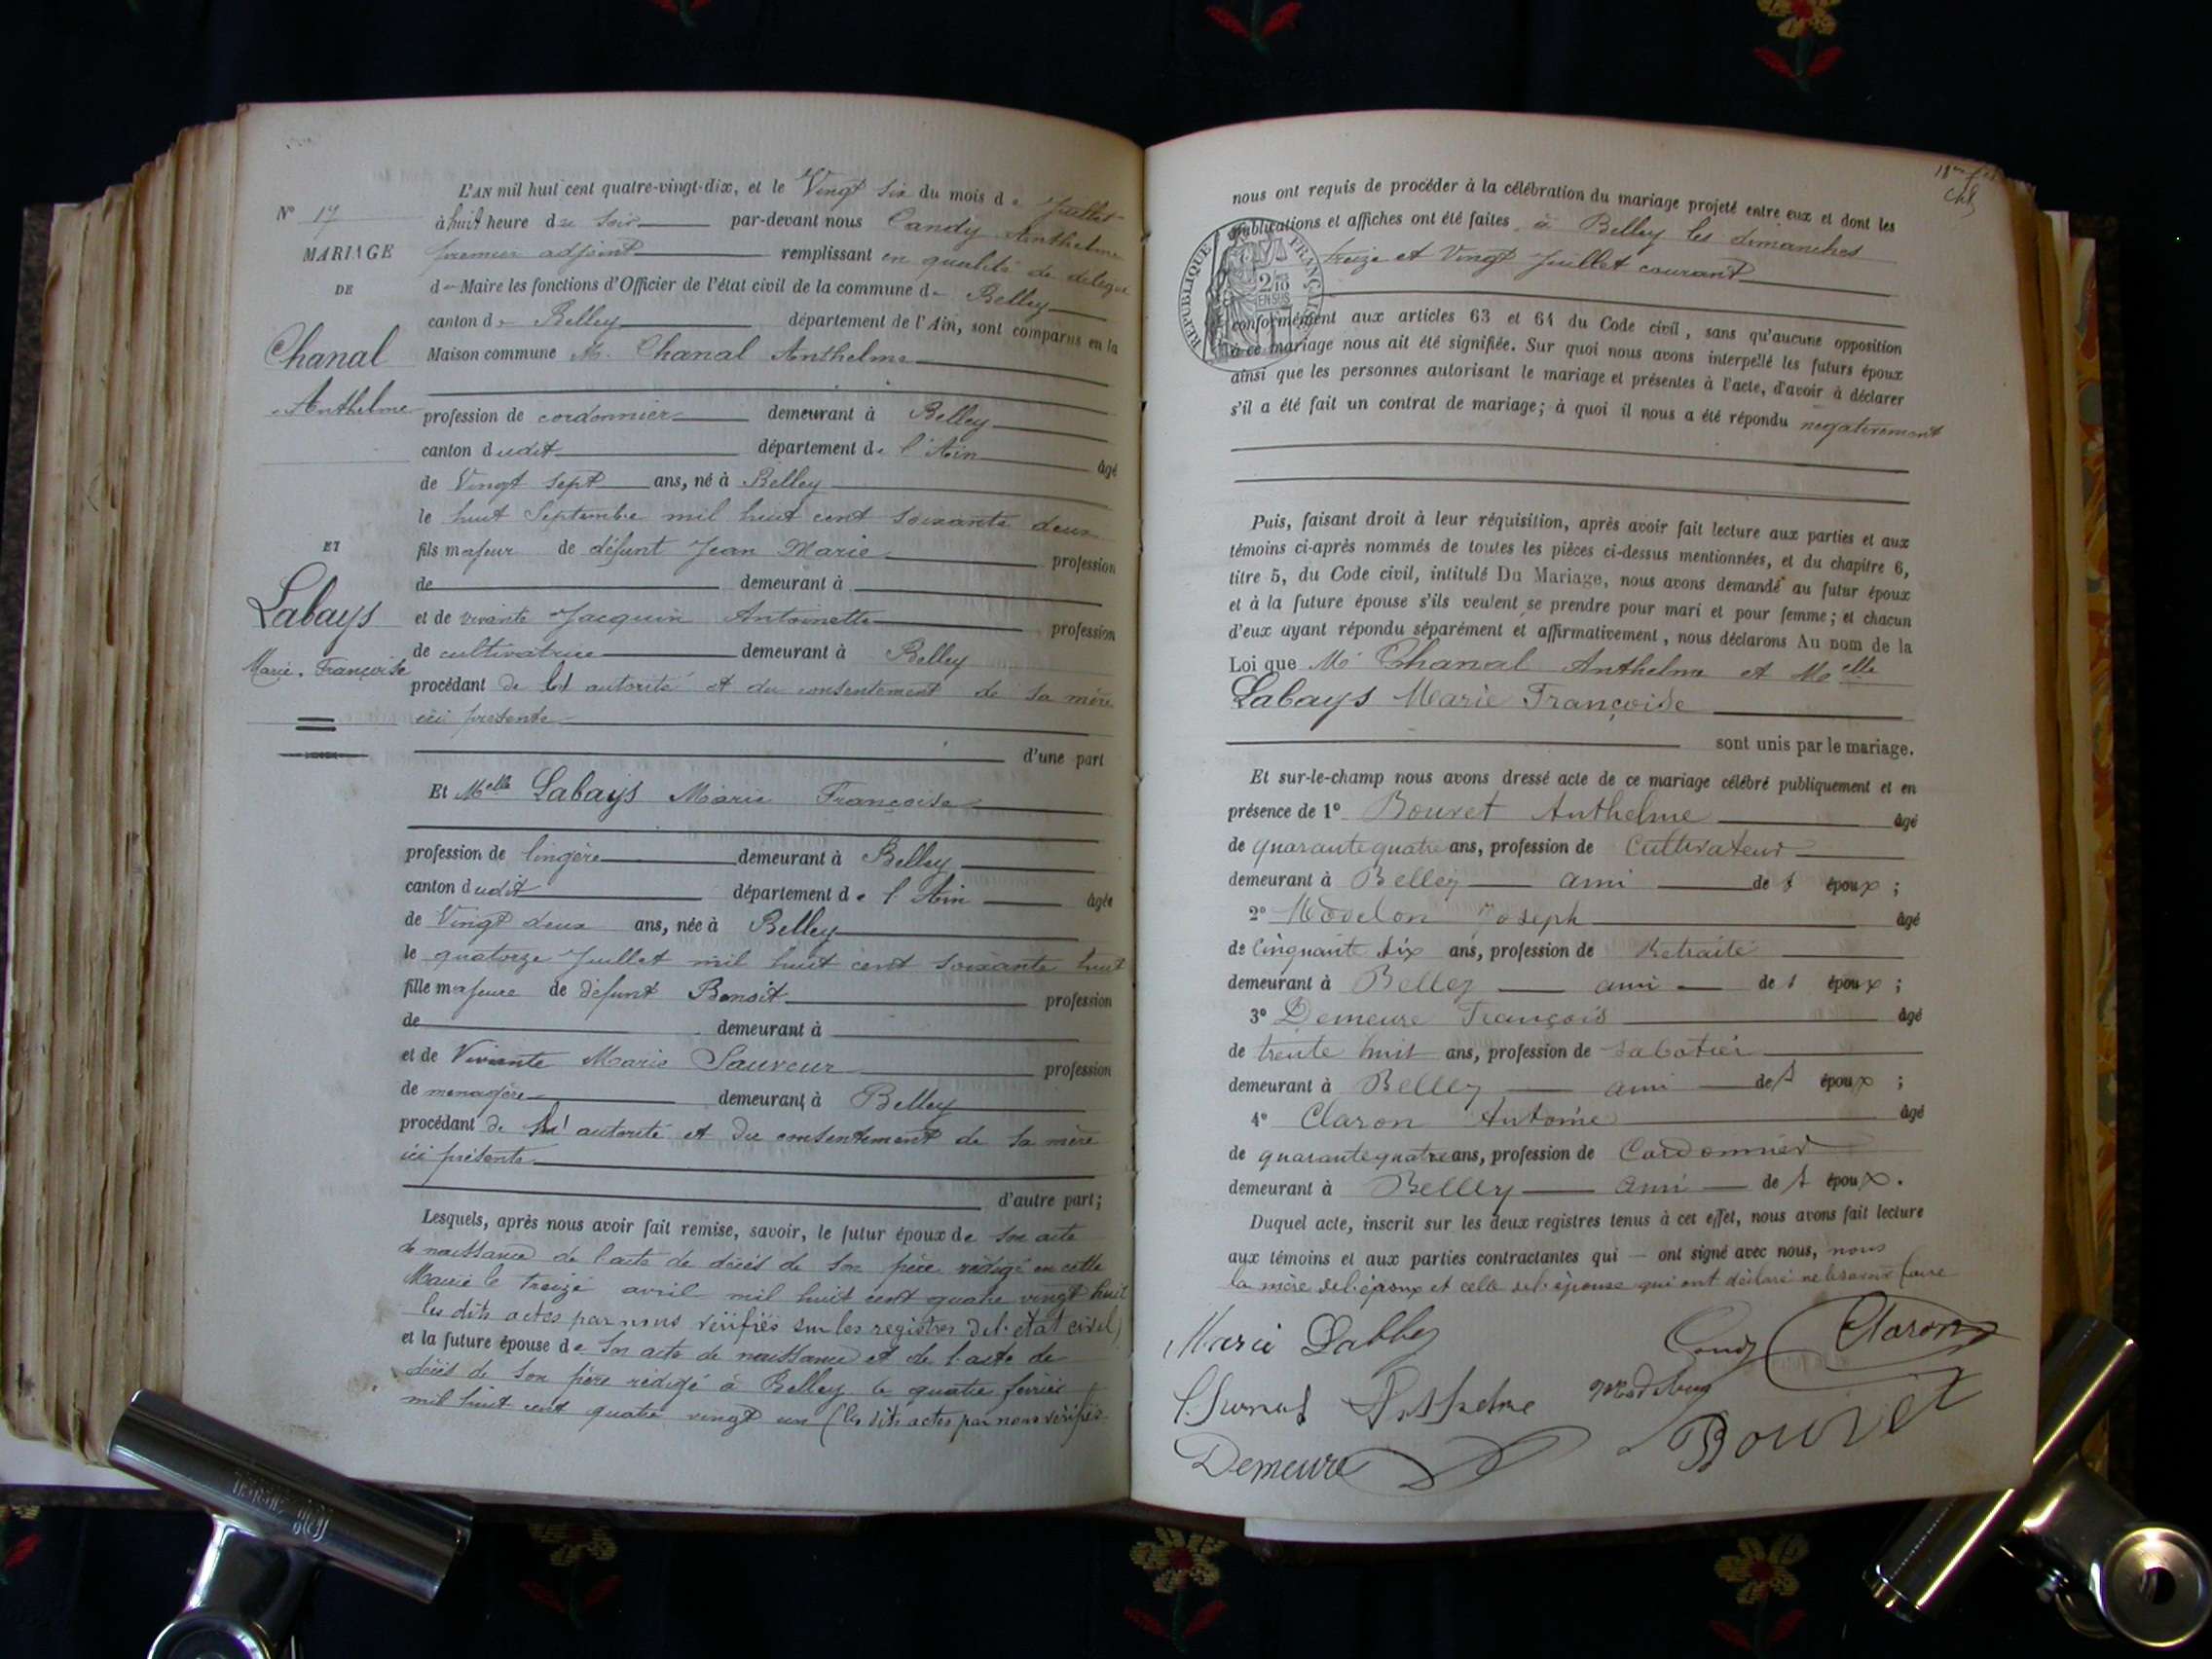 L'AN mil huit cent quatre-vingt-dix, et le Vingt six du mois de Juillet
N° 17
à huit heure du soir par-devant nous Candy Anthelme
MARIAGE
premier adjoint remplissant en qualité de délégué
DE
de Maire les fonctions d'Officier de l'état civil de la commune de Belley
canton de Belley département de l'Ain, sont comparus en la
Chanal
Maison commune M. Chanal Anthelme
Anthelme
profession de cordonnier demeurant à Belley
canton dudit département de l'Ain âgé
de Vingt sept ans, né à Belley
le huit Septembre mil huit cent soixante deux
ET
fils majeur de défunt Jean Marie profession
de demeurant à
Labays
et de vivante Jacquin Antoinette profession
de cultivatrice demeurant à Belley
Marie, Françoise
procédant de autorité et du consentement de sa mère
ici présente
d'une part
Et Melle Labays Marie Françoise
profession de lingère demeurant à Belley
canton dudit département de l'Ain âgée
de Vingt deux ans, née à Belley
le quatorze Juillet mil huit cent soixante huit
fille majeure de défunt Benoit profession
de demeurant à
et de Vivante Marie Sauveur profession
de menagère demeurant à Belley
procédant de autorité et du consentement de sa mère
ici présente
d'autre part;
Lesquels, après nous avoir fait remise, savoir, le futur époux de son acte
de naissance de l'acte de décès de son père rédigé en cette
Mairie le treize avril mil huit cent quatre vingt huit
les dits actes par nous vérifiés sur les registres de l'état civil)
et la future épouse de son acte de naissance et de l'acte de
décès de son père rédigé à Belley le quatre février
mil huit cent quatre vingt un (les dits actes par nous vérifiés
nous ont requis de procéder à la célébration du mariage projeté entre eux et dont les
publications et affiches ont été faites à Belley les dimanches
treize et Vingt Juillet courant
RÉPUBLIQUE FRANÇAISE
2/10 EN SUS
conformément aux articles 63 et 64 du Code civil, sans qu'aucune opposition
à ce mariage nous ait été signifiée. Sur quoi nous avons interpellé les futurs époux
ainsi que les personnes autorisant le mariage et présentes à l'acte, d'avoir à déclarer
s'il a été fait un contrat de mariage; à quoi il nous a été répondu negativement
Puis, faisant droit à leur réquisition, après avoir fait lecture aux parties et aux
témoins ci-après nommés de toutes les pièces ci-dessus mentionnées, et du chapitre 6,
titre 5, du Code civil, intitulé Du Mariage, nous avons demandé au futur époux
et à la future épouse s'ils veulent se prendre pour mari et pour femme; et chacun
d'eux ayant répondu séparément et affirmativement, nous déclarons Au nom de la
Loi que Mr Chanal Anthelme et Melle
Labays Marie Françoise
sont unis par le mariage.
Et sur-le-champ nous avons dressé acte de ce mariage célébré publiquement et en
présence de 1° Bouvet Anthelme âgé
de quarante quatre ans, profession de Cultivateur
demeurant à Belley ami des époux;
2° Joseph âgé
de Cinquante six ans, profession de Retraité
demeurant à Belley ami des époux;
3° Demeure François âgé
de trente huit ans, profession de sabotier
demeurant à Belley ami des époux;
4° Claron Antoine âgé
de quarante quatre ans, profession de Cordonnier
demeurant à Belley ami des époux.
Duquel acte, inscrit sur les deux registres tenus à cet effet, nous avons fait lecture
aux témoins et aux parties contractantes qui — ont signé avec nous, nous
la mère de l'époux et celle de l'épouse qui ont déclaré ne le savoir faire
Marie Labbey
Candy Claron
Demeure Bouvet